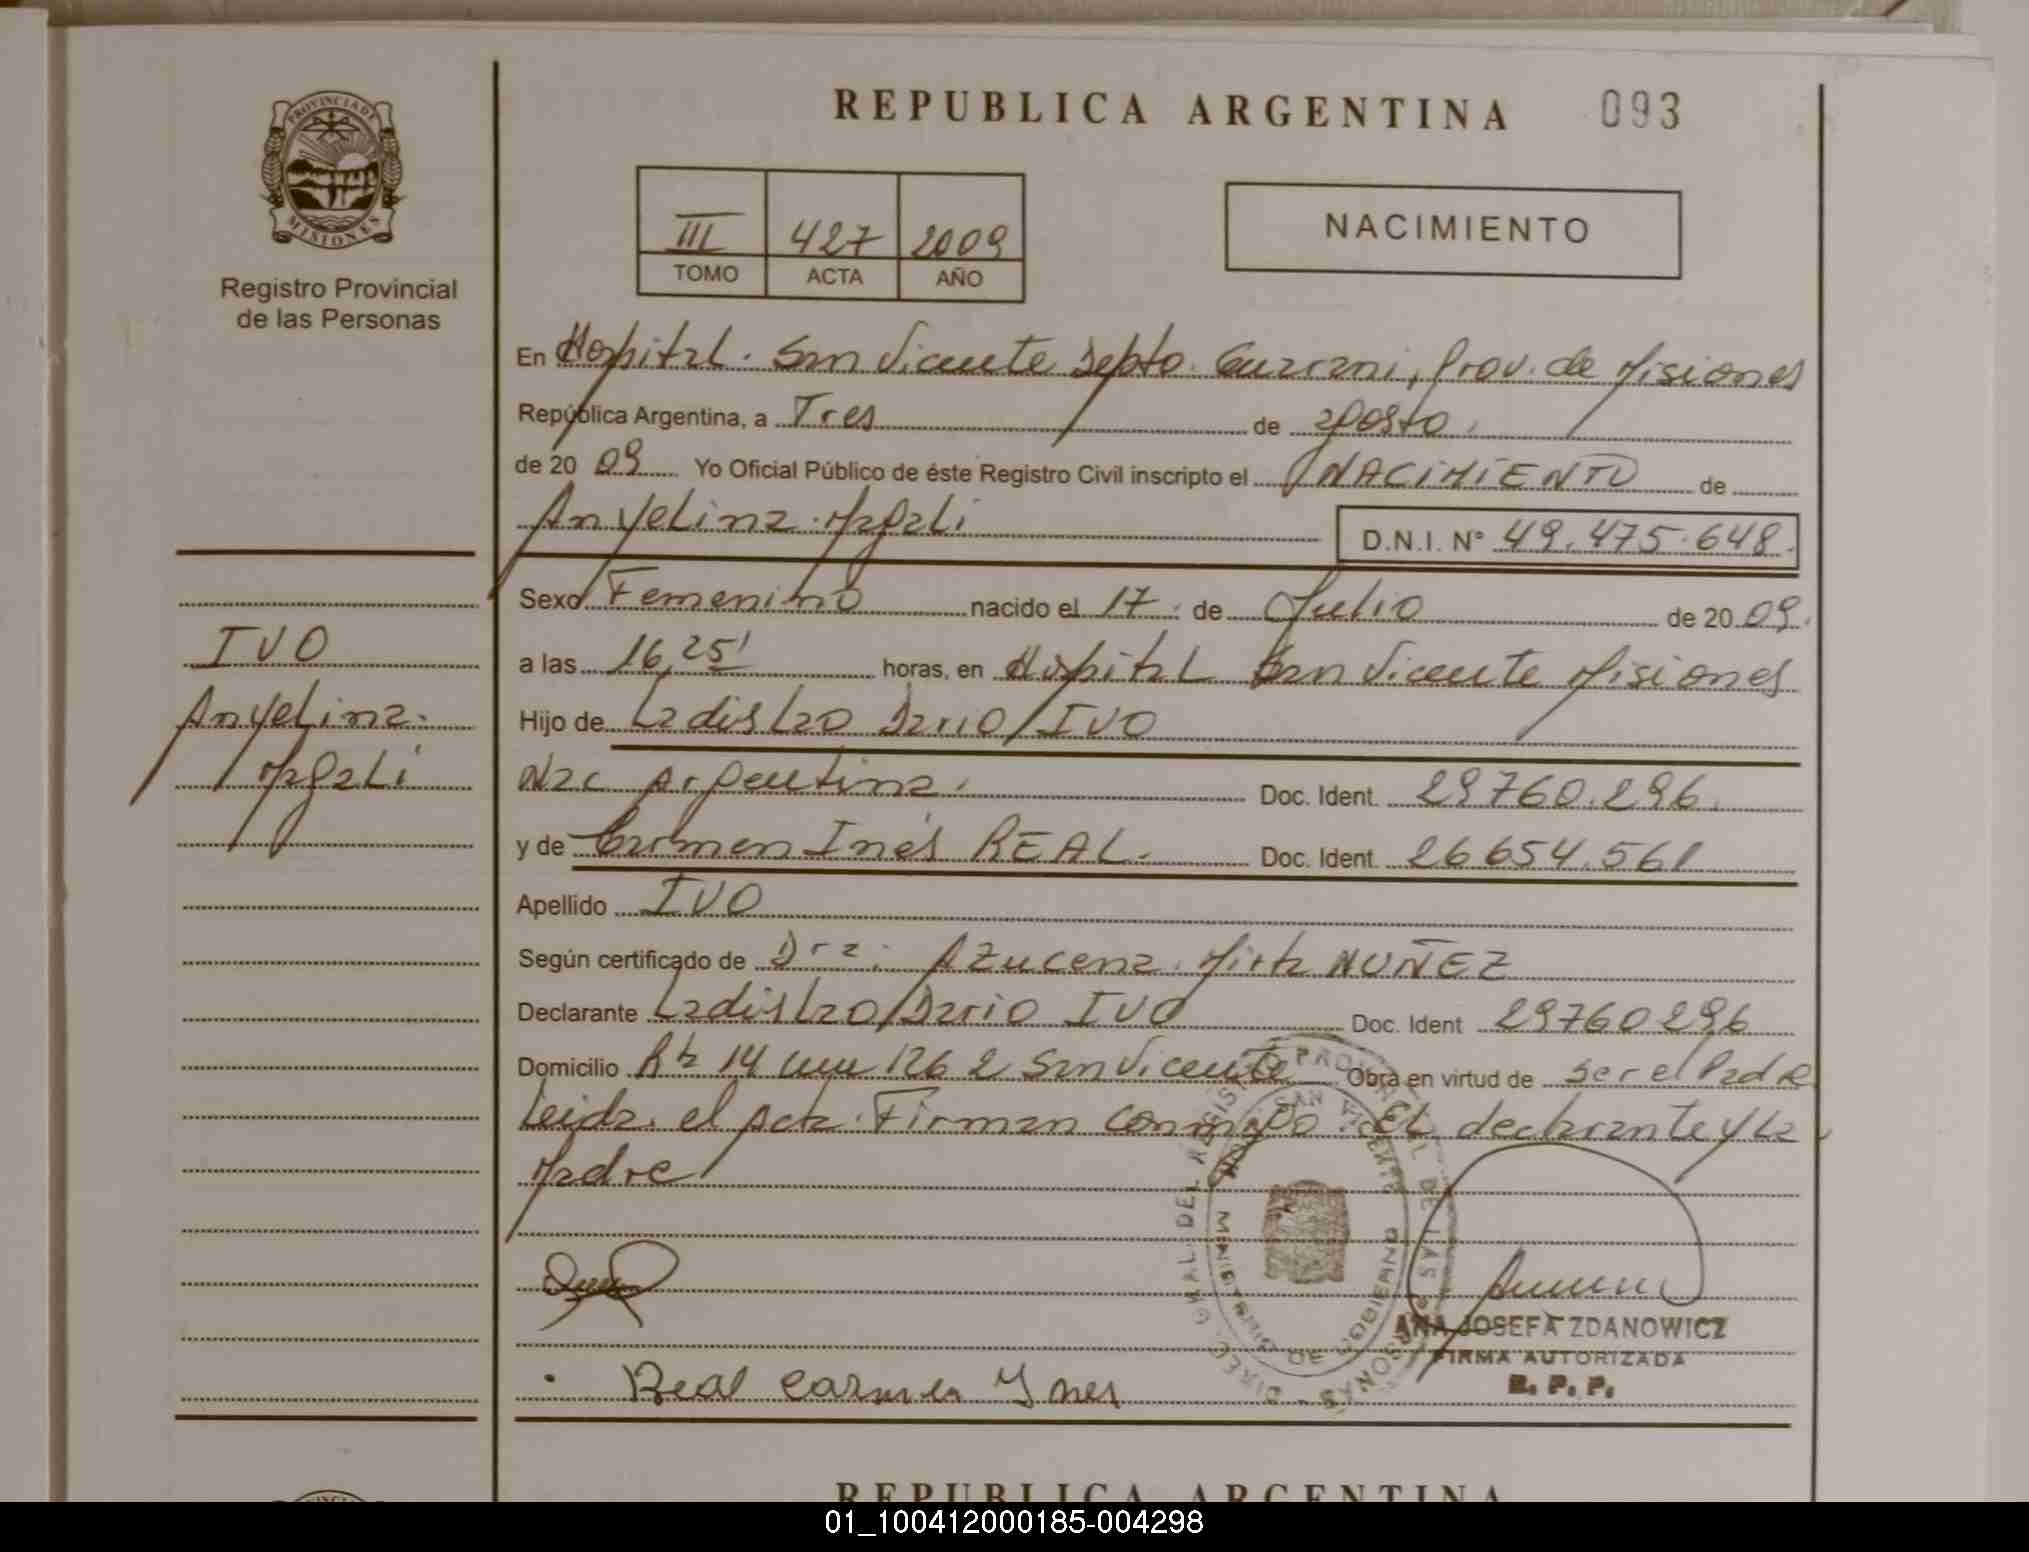 PROVINCIA DE
MISIONES
Registro Provincial
de las Personas
REPUBLICA ARGENTINA 093
III 427 2009
TOMO ACTA AÑO
NACIMIENTO
En Hospital. San Vicente Depto. Guarani, Prov. de Misiones
República Argentina, a Tres de agosto.
de 20 09 Yo Oficial Público de éste Registro Civil inscripto el NACIMIENTO de
Anyelina Magali D.N.I. N° 49.475.648.
Sexo Femenino nacido el 17 de Julio de 20 09.
a las 16,25' horas, en Hospital San Vicente Misiones
Hijo de Ladislao Dario IVO
Nac Argentina. Doc. Ident. 29760.296.
y de Carmen Inés REAL. Doc. Ident. 26654.561
Apellido IVO
Según certificado de Dra. Azucena Mirta NUÑEZ
Declarante Ladislao Dario IVO Doc. Ident 29760296
Domicilio Rta 14 1262 San Vicente Obra en virtud de ser el Padre
Leida el Acta Firman conmigo El declarante y La
Madre
IVO
Anyelina
Magali
DIREC. GRAL. DEL REGISTRO PROVINCIAL DE LAS PERSONAS
SAN VICENTE
MINISTERIO DE GOBIERNO
ANA JOSEFA ZDANOWICZ
FIRMA AUTORIZADA
R. P. P.
Real Carmen Ynes
REPUBLICA ARGENTINA
01_100412000185-004298